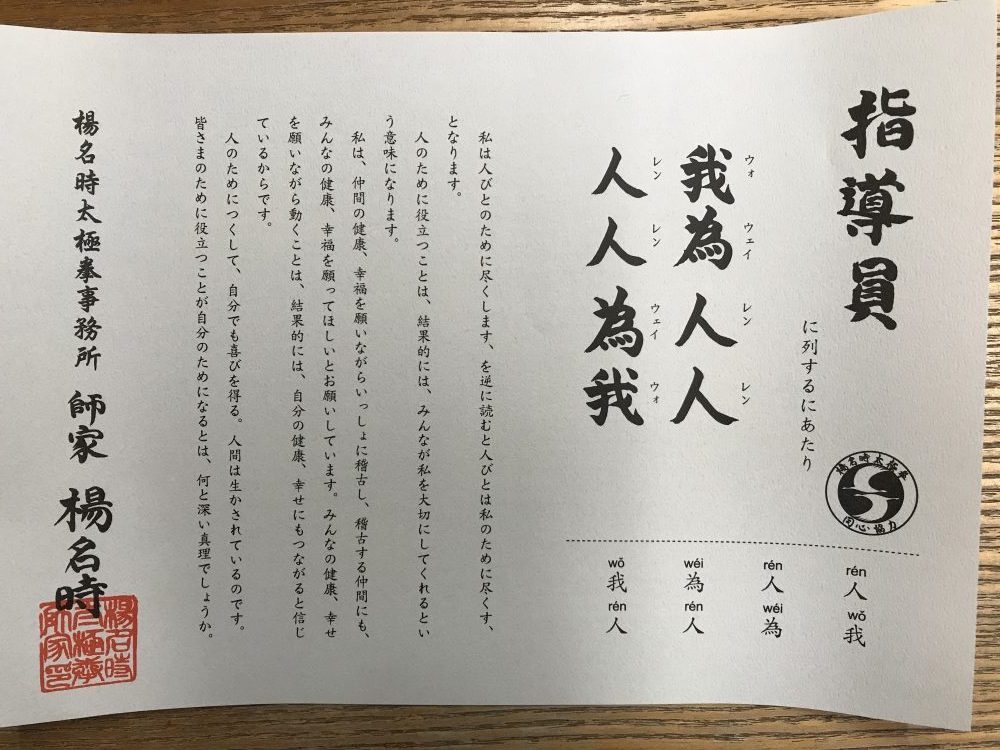 指導員
に列するにあたり
楊名時太極拳
同心協力
ウォ ウェイ レン レン
我為人人
レン レン ウェイ ウォ
人人為我
wǒ wéi rén rén
我 為 人 人
rén rén wéi wǒ
人 人 為 我
私は人びとのために尽くします、を逆に読むと人びとは私のために尽くす、
となります。
人のために役立つことは、結果的には、みんなが私を大切にしてくれるとい
う意味になります。
私は、仲間の健康、幸福を願いながらいっしょに稽古し、稽古する仲間にも、
みんなの健康、幸福を願ってほしいとお願いしています。みんなの健康、幸せ
を願いながら動くことは、結果的には、自分の健康、幸せにもつながると信じ
ているからです。
人のためにつくして、自分でも喜びを得る。人間は生かされているのです。
皆さまのために役立つことが自分のためになるとは、何と深い真理でしょうか。
楊名時太極拳事務所 師家 楊名時
楊名時
太極拳
師家印